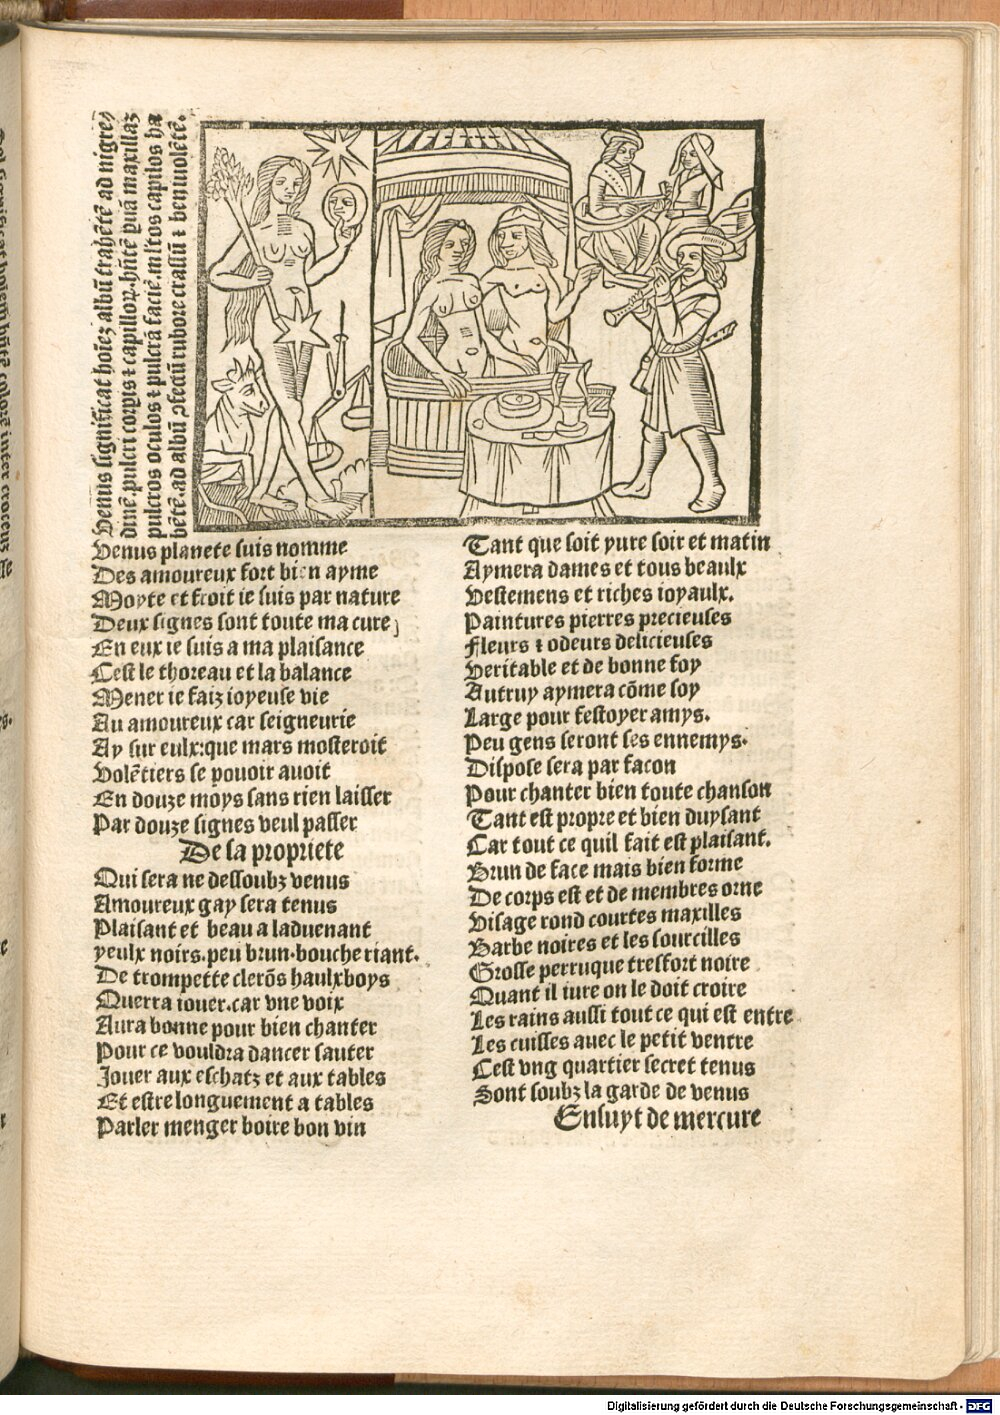 Venus significat hoiez albũ trahẽtẽ ad nigre
dinẽ.pulcri corpis ⁊ capilloꝝ.hñtẽ ꝑuã maxillaz
pulcros oculos ⁊ pulcrã faciẽ.mĺtos capĺlos ha
bẽtẽ.ad albũ ↄfectũ rubore crassũ ⁊ beniuolẽtẽ.
Venus planete suis nomme
Des amoureux fort bien ayme
Moyte et froit ie suis par nature
Deux signes sont toute ma cure
En eux ie suis a ma plaisance
Cest le thoreau et la balance
Mener ie faiz ioyeuse vie
Au amoureux car seigneurie
Ay sur eulx:que mars mosteroit
Volẽtiers se pouoir auoit
En douze moys sans rien laisser
Par douze signes veul passer
De sa propriete
Qui sera ne dessoubz venus
Amoureux gay sera tenus
Plaisant et beau a laduenant
yeulx noirs.peu brun.bouche riant.
De trompette clerõs haulxboys
Querra iouer.car vne voix
Aura bonne pour bien chanter
Pour ce vouldra dancer sauter
Jouer aux eschatz et aux tables
Et estre longuement a tables
Parler menger boire bon vin
Tant que soit yure soir et matin
Aymera dames et tous beaulx
Vestemens et riches ioyaulx.
Paintures pierres precieuses
Fleurs ⁊ odeurs delicieuses
Veritable et de bonne foy
Autruy aymera cõme soy
Large pour festoyer amys.
Peu gens seront ses ennemys.
Dispose sera par facon
Pour chanter bien toute chanson
Tant est propre et bien duysant
Car tout ce quil fait est plaisant.
Brun de face mais bien forme
De corps est et de membres orne
Visage rond courtes maxilles
Barbe noires et les sourcilles
Grosse perruque tresfort noire
Quant il iure on le doit croire
Les rains aussi tout ce qui est entre
Les cuisses auec le petit ventre
Cest vng quartier secret tenus
Sont soubz la garde de venus
Ensuyt de mercure
Digitalisierung gefördert durch die Deutsche Forschungsgemeinschaft - DFG